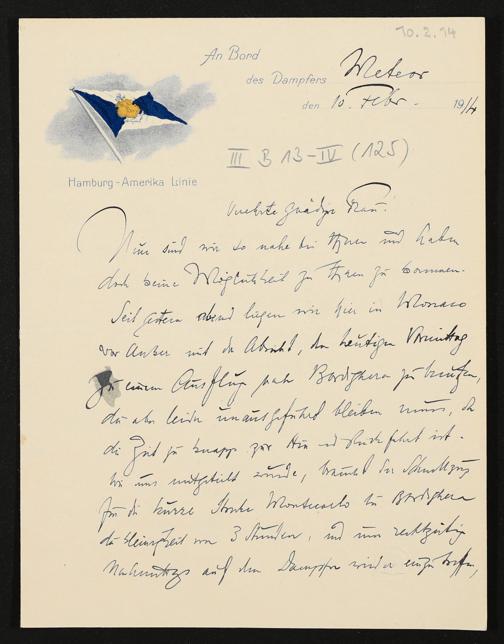 10.2.14
An Bord
des Dampfers Meteor
den 10. Febr. 1914
Hamburg-Amerika Linie
III B 13-IV (125)
Verehrte gnädige Frau!
Nun sind wir so nahe bei Ihnen und haben
doch keine Möglichkeit zu Ihnen zu kommen.
Seit gestern abend liegen wir hier in Monaco
vor Anker mit der Absicht, den heutigen Vormittag
zu einem Ausflug nach Bordighera zu benützen,
der aber leider unausgeführt bleiben muss, da
die Zeit zu knapp zur Hin und Rückfahrt ist.
Wie uns mitgeteilt wurde, braucht der Schnellzug
für die kurze Strecke Montecarlo bis Bordighera
die Kleinigkeit von 3 Stunden, und um rechtzeitig
Nachmittags auf dem Dampfer wieder einzutreffen,